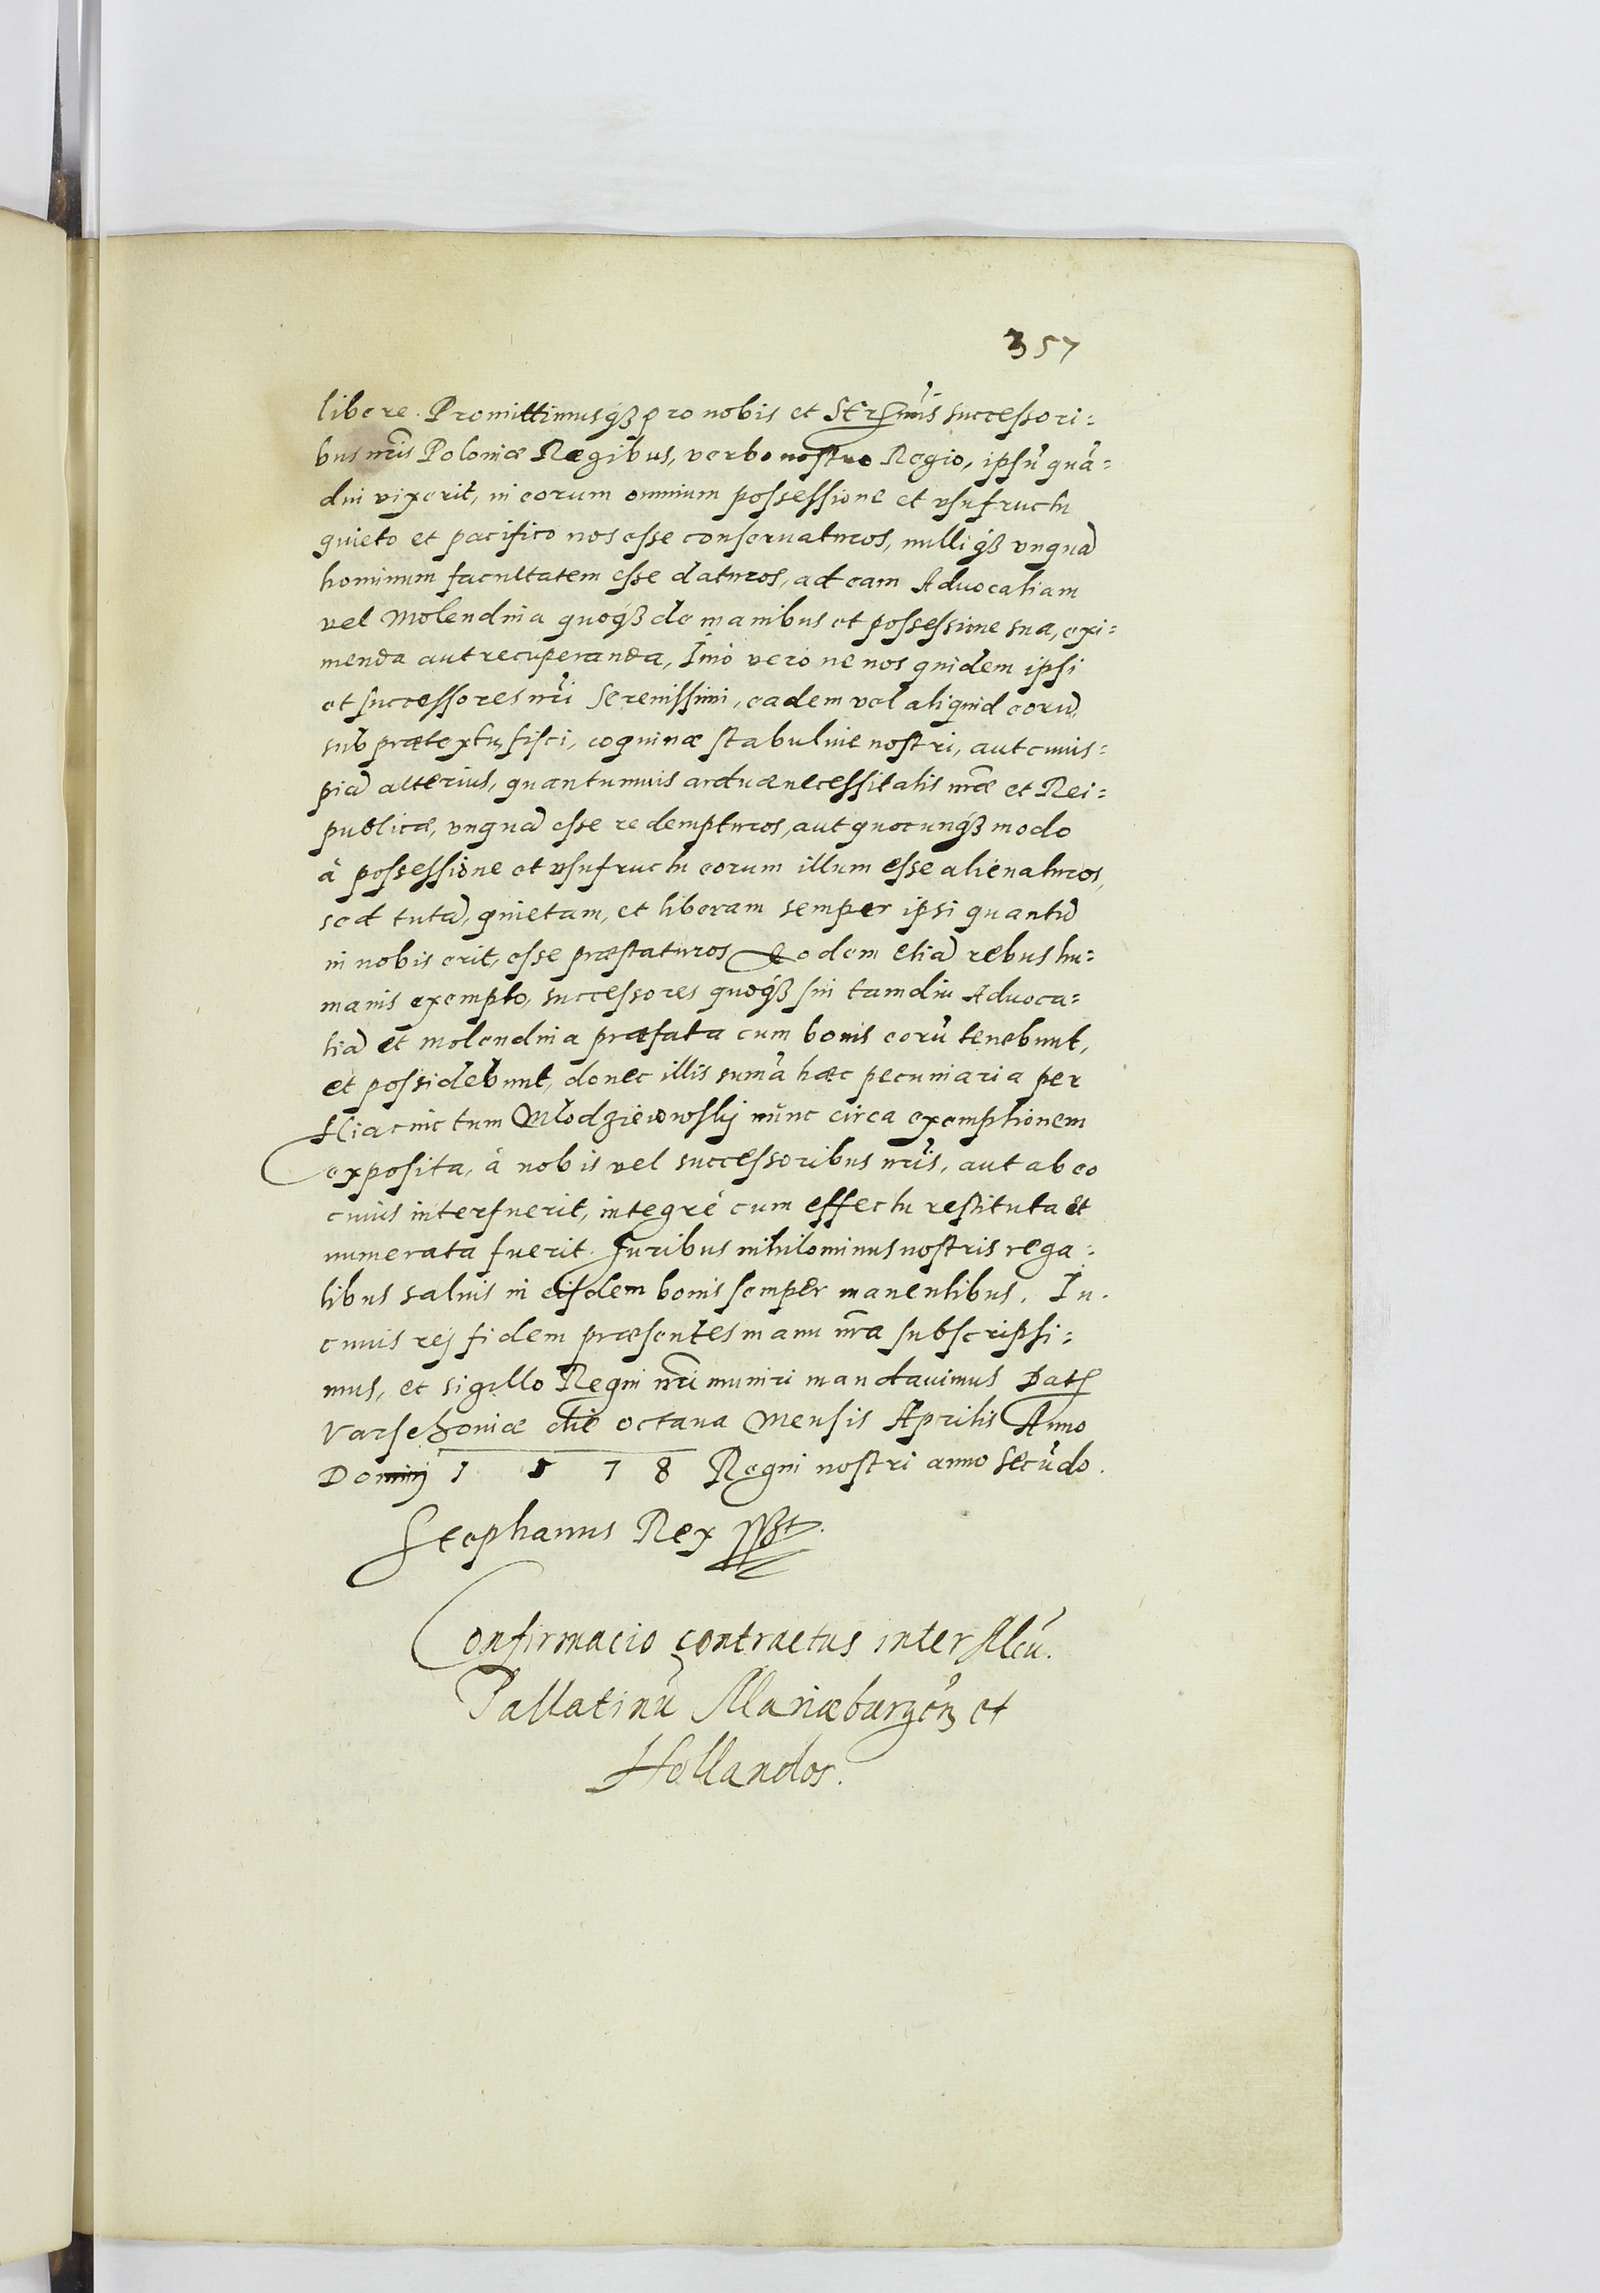 357
libere. Promittimusqꝫ pro nobis et Serᵐⁱˢ successori=
bus nr̃is Poloniæ Regibus, verbo nostro Regio, ipsũ quã=
diu vixerit, in eorum omnium possessione et vsufructu
quieto et pacifico nos esse conseruaturos, nulli qꝫ vnquã
hominum facultatem esse daturos, ad eam Aduocatiam
vel Molendina quoqꝫ de manibus et possessione sua, exi=
menda aut recuperanda, Imò vero ne nos quidem ipsi
et successores nr̃i Serenissimi, eadem vel aliquid eorũ,
sub prætextu fisci, coquinæ stabuliue nostri, aut cuius=
piã alterius, quantumuis arduæ necessitatis nr̃æ et Rei=
publicæ, vnquã esse redempturos, aut quocunqꝫ modo
à possessione et vsufructu eorum illum esse alienaturos,
sed tutã, quietam, et liberam semper ipsi quantũ
in nobis erit, esse præstaturos Eodem etiã rebus hu=
manis exempto, successores quoqꝫ sui tamdiu Aduoca=
tiã et molendina præfata cum bonis eorũ tenebunt,
et possidebunt, donec illis summa hæc pecuniaria per
Hiacinctum Młodziewowskij nũnc circa exemptionem
exposita, à nobis vel successoribus nr̃is, aut ab eo
cuius interfuerit, integrè cum effectu restituta et
numerata fuerit. Juribus nihilominus nostris rega=
libus saluis in eisdem bonis semper manentibus. In
cuius rej fidem præsentes manu nr̃a subscripsi=
mus, et sigillo Regni nr̃i muniri mandauimus Datꝫ
Varschoviæ die octaua Mensis Aprilis Anno
Dominj 1 5 7 8 Regni nostri anno Secũdo.
Stephanus Rex sst.
Confirmacio contractus inter Mcũ.
Pallatinũ Mariæburgeñ et
Hollandos.